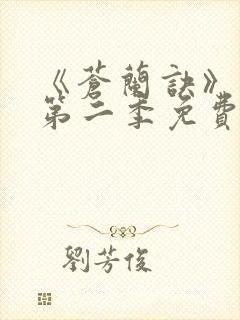 《蒼蘭訣》
第二季免費
劉芳俊